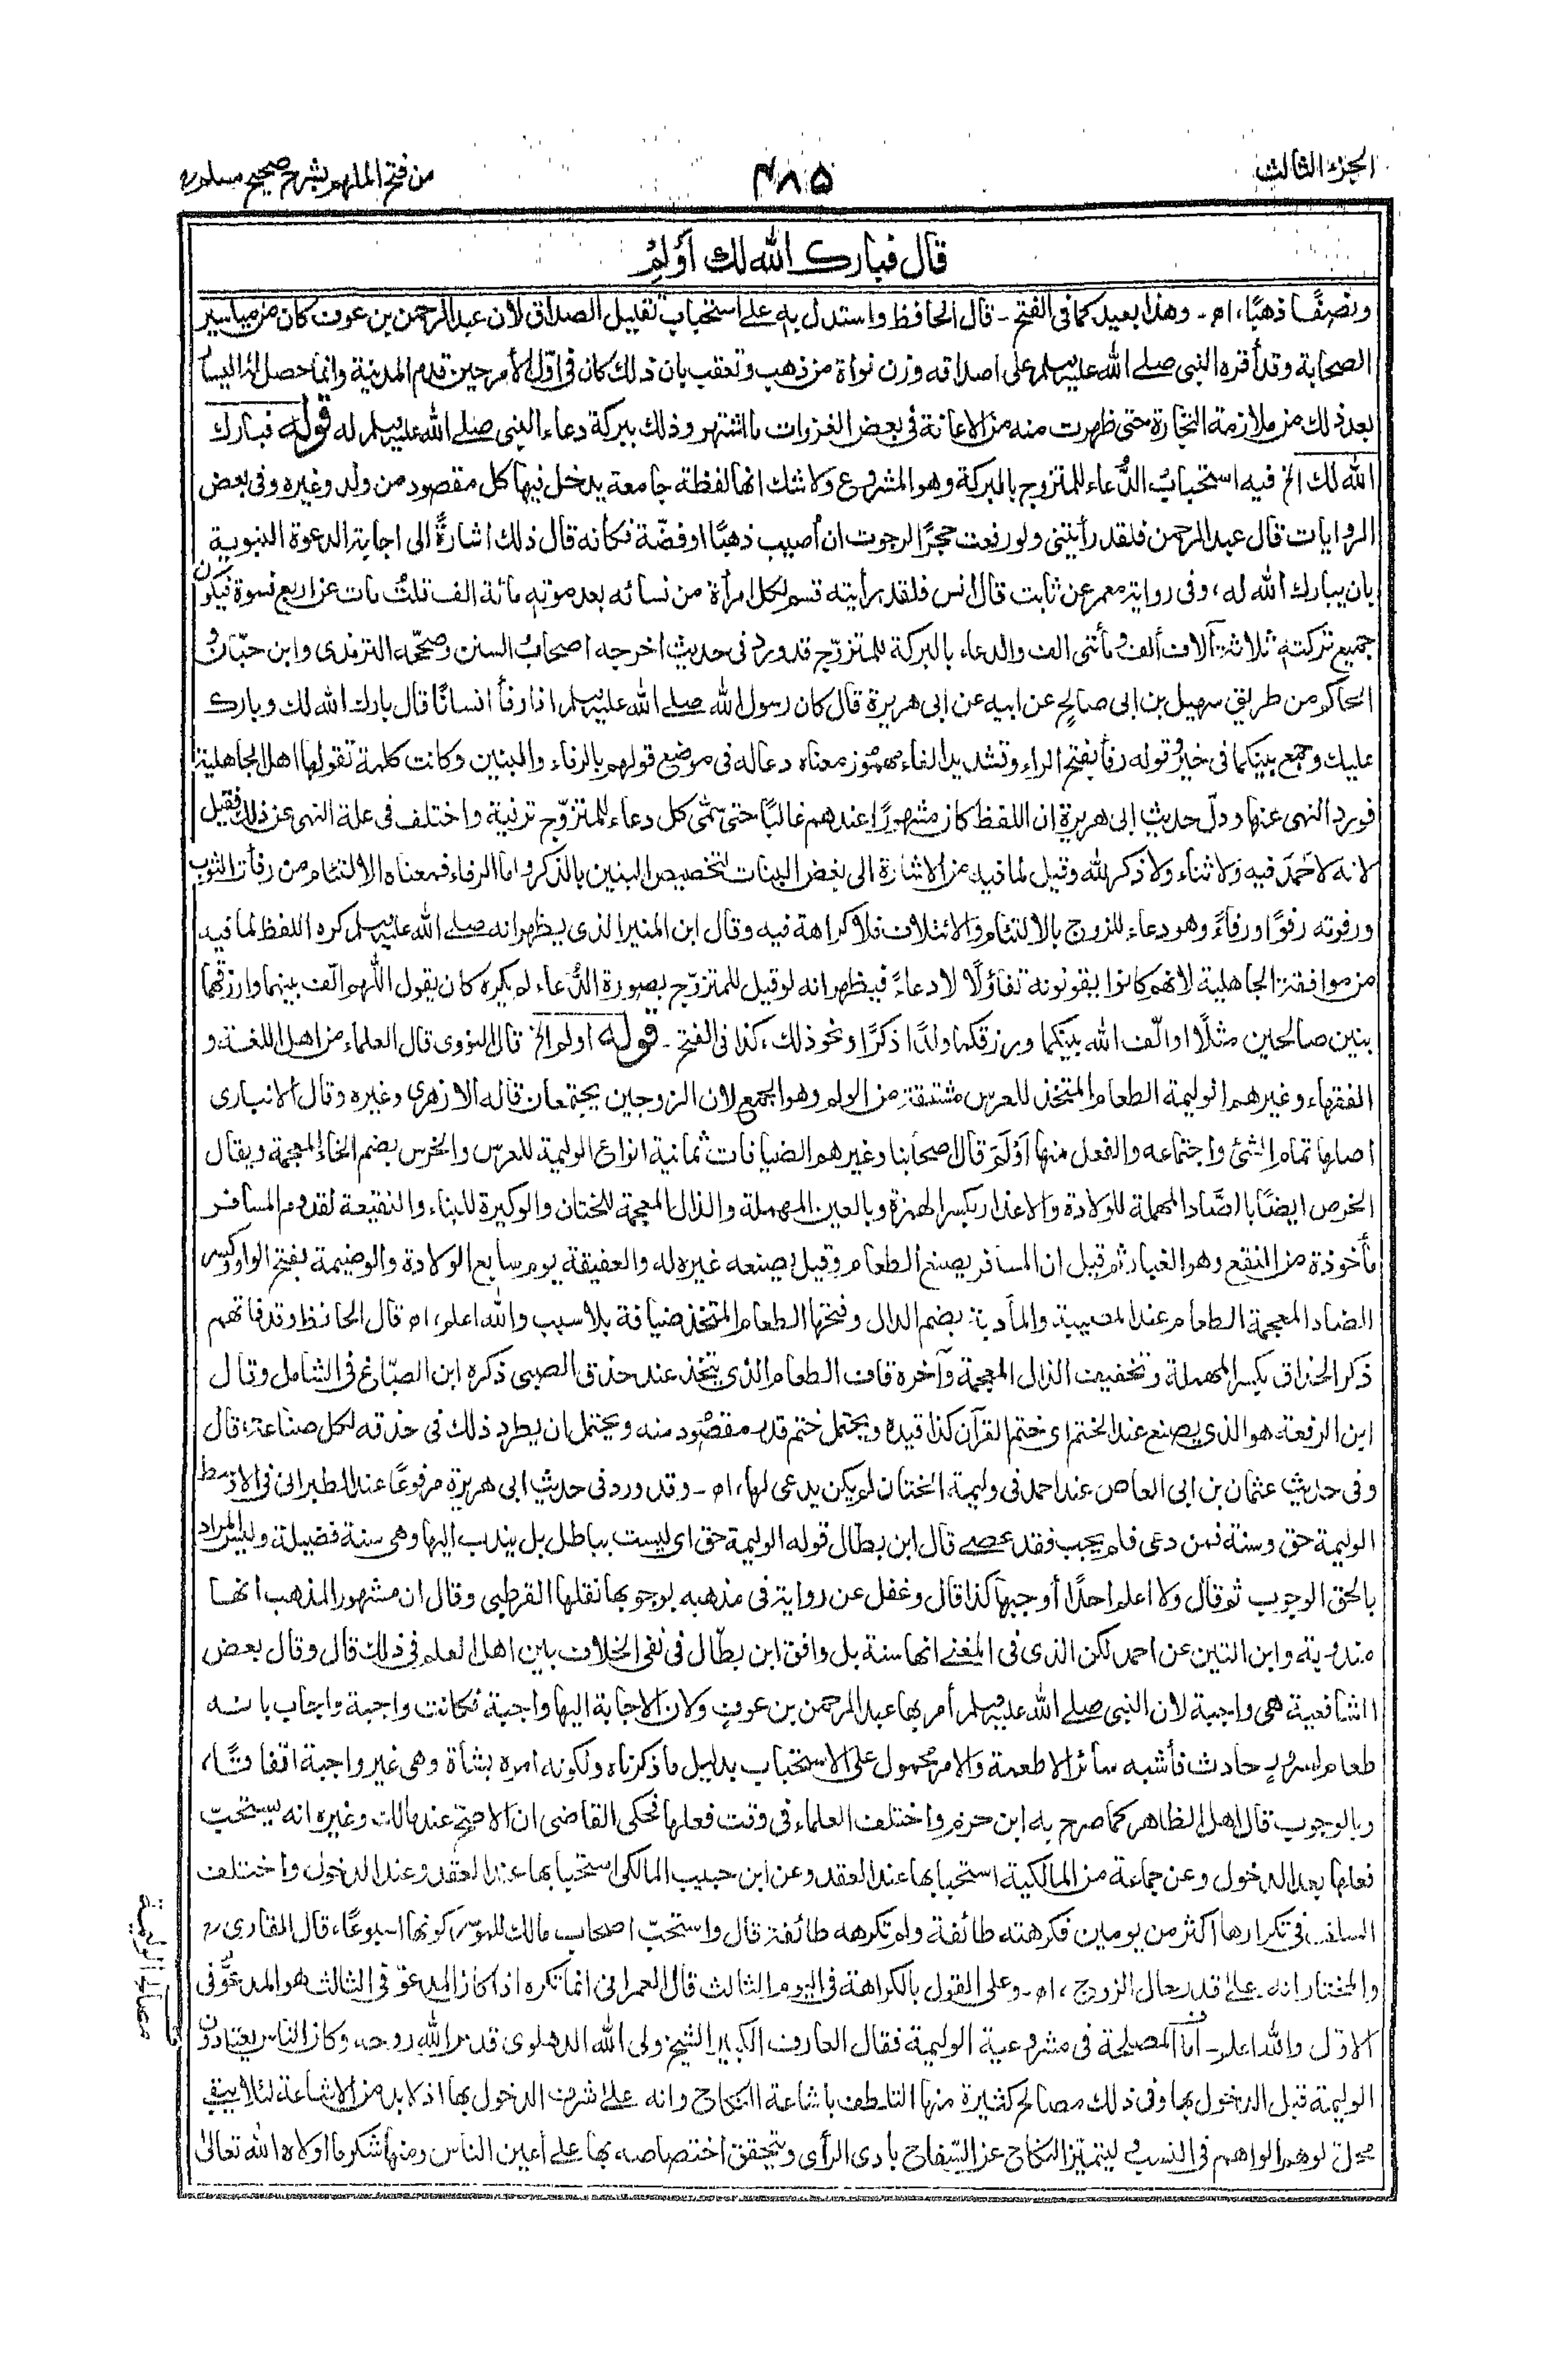 الجزء الثالث
٤٨٥
من فتح الملهم بشرح صحيح مسلم
قال فبارك الله لك أَوْلِمْ
ونصفًا ذهبًا، اه - وهذا بعيد كما فى الفتح - قال الحافظ واستدل به على استحباب تقليل الصداق لان عبد الرحمن بن عوف كان من مياسير
الصحابة وقد أقره النبى صلى الله عليه وسلم على اصداقه وزن نواة من ذهب وتعقب بان ذلك كان فى اوّل الأمر حين قدم المدينة وانما حصل له اليسار
بعد ذلك من ملازمة التجارة حتى ظهرت منه من الاعانة فى بعض الغزوات ما اشتهر وذلك ببركة دعاء النبى صلى الله عليه وسلم له قوله فبارك
الله لك الخ فيه استحباب الدُّعاء للمتزوج بالبركة وهو المشروع ولا شك انها لفظة جامعة يدخل فيها كل مقصود من ولد وغيره وفى بعض
الروايات قال عبد الرحمن فلقد رأيتنى ولو رفعت حجرًا لرجوت ان أصيب ذهبًا او فضّة فكانه قال ذلك اشارةً الى اجابة الدعوة النبوية
بان يبارك الله له، وفى رواية معمر عن ثابت قال انس فلقد رأيته قسم لكل امرأة من نسائه بعد موته مائة الف قلتُ مات عن اربع نسوة فيكون
جميع تركته ثلاثة آلاف ألف ومأئتى الف والدعاء بالبركة للمتزوّج قد ورد فى حديث اخرجه اصحاب السنن وصحّحه الترمذى وابن حبّان و
الحاكم من طريق سهيل بن ابى صالح عن ابيه عن ابى هريرة قال كان رسول الله صلى الله عليه وسلم اذا رفأ انسانًا قال بارك الله لك وبارك
عليك وجمع بينكما فى خير وقوله رفأ بفتح الراء وتشديد الفاء مهموز معناه دعا له فى موضع قولهم بالرفاء والبنين وكانت كلمة تقولها اهل الجاهلية
فورد النهى عنها ودلّ حديث ابى هريرة ان اللفظ كان مشهورًا عندهم غالبًا حتى سمّى كل دعاء للمتزوّج ترفية واختلف فى علة النهى عن ذلك فقيل
لانه لا حَمْدَ فيه ولا ثناء ولا ذكر لله وقيل لما فيه من الاشارة الى بغض البنات لتخصيص البنين بالذكر واما الرفاء فمعناه الالتئام من رفأت الثوب
ورفوته رفوًا ورفاءً وهو دعاء للزوج بالالتئام والائتلاف فلا كراهة فيه وقال ابن المنير الذى يظهر انه صلى الله عليه وسلم كره اللفظ لما فيه
من موافقة الجاهلية لانهم كانوا يقولونه تفاؤلًا لا دعاءً فيظهر انه لو قيل للمتزوّج بصورة الدُّعاء لم يكره كان يقول اللّٰهم الّف بينهما وارزقهما
بنين صالحين مثلًا او الّف الله بينكما ورزقكما ولدًا ذكرًا ونحو ذلك، كذا فى الفتح - قوله اولم الخ قال النووى قال العلماء من اهل اللغة و
الفقهاء وغيرهم الوليمة الطعام المتخذ للعرس مشتقة من الولم وهو الجمع لان الزوجين يجتمعان قاله الازهرى وغيره وقال الانبارى
اصلها تمام الشئ واجتماعه والفعل منها أَوْلَمَ قال اصحابنا وغيرهم الضيافات ثمانية انواع الوليمة للعرس والخرس بضم الخاء المعجمة ويقال
الخرص ايضًا بالصّاد المهملة للولادة والاعذار بكسر الهمزة وبالعين المهملة والذال المعجمة للختان والوكيرة للبناء والنقيعة لقدوم المسافر
مأخوذة من النقع وهو الغبار ثم قيل ان المسافر يصنع الطعام وقيل يصنعه غيره له والعقيقة يوم سابع الولادة والوضيمة بفتح الواو وكسر
الضاد المعجمة الطعام عند المصيبة والمأدبة بضم الدال وفتحها الطعام المتخذ ضيافة بلا سبب والله اعلم، اه قال الحافظ وقد فاتهم
ذكر الحذاق بكسر المهملة وتخفيف الذال المعجمة وآخره قاف الطعام الذى يتخذ عند حذق الصبى ذكره ابن الصبّاغ فى الشامل وقال
ابن الرفعة هو الذى يصنع عند الختم اى ختم القرآن كذا قيده ويحتمل ختم قدر مقصود منه ويحتمل ان يطرد ذلك فى حذقه لكل صناعة، قال
وفى حديث عثمان بن ابى العاص عند احمد فى وليمة الختان لم يكن يدعى لها، اه - وقد ورد فى حديث ابى هريرة مرفوعًا عند الطبرانى فى الاوسط
الوليمة حق وسنة فمن دعى فلم يجب فقد عصى قال ابن بطّال قوله الوليمة حق اى ليست بباطل بل يندب اليها وهى سنة فضيلة وليس المراد
بالحق الوجوب ثم قال ولا اعلم احدًا أوجبها كذا قال وغفل عن رواية فى مذهبه بوجوبها نقلها القرطبى وقال ان مشهور المذهب انها
مندوبة وابن التين عن احمد لكن الذى فى المغنى انها سنة بل وافق ابن بطّال فى نفى الخلاف بين اهل العلم فى ذلك قال وقال بعض
الشافعية هى واجبة لان النبى صلى الله عليه وسلم أمر بها عبد الرحمن بن عوف ولان الاجابة اليها واجبة فكانت واجبة واجاب بانه
طعام لسرور حادث فأشبه سائر الاطعمة والامر محمول على الاستحباب بدليل ما ذكرناه ولكونه امره بشأة وهى غير واجبة اتفاقًا،
وبالوجوب قال اهل الظاهر كما صرح به ابن حزم واختلف العلماء فى وقت فعلها فحكى القاضى ان الاصحّ عند مالك وغيره انه يستحبّ
فعلها بعد الدخول وعن جماعة من المالكية استحبابها عند العقد وعن ابن حبيب المالكى استحبابها عند العقد وعند الدخول واختلف
السلف فى تكرارها اكثر من يومين فكرهته طائفة ولم تكرهه طائفة قال واستحبّ اصحاب مالك للموسر كونها اسبوعًا، قال القارى
والمختار انه على قدر حال الزوج، اه - وعلى القول بالكراهة فى اليوم الثالث قال العمرانى انما تكره اذا كان المدعوّ فى الثالث هو المدعوّ فى
الاوّل والله اعلم - أما المصلحة فى مشروعية الوليمة فقال العارف الكبير الشيخ ولى الله الدهلوى قدس الله روحه وكان الناس يعتادون
الوليمة قبل الدخول بها وفى ذلك مصالح كثيرة منها التلطف باشاعة النكاح وانه على شرف الدخول بها اذ لا بد من الاشاعة لئلا يبقى
محل لوهم الواهم فى النسب وليتميّز النكاح عن السّفاح بادى الرأى ويتحقق اختصاصه بها على أعين الناس ومنها شكر ما اولاه الله تعالى
مصالح الوليمة